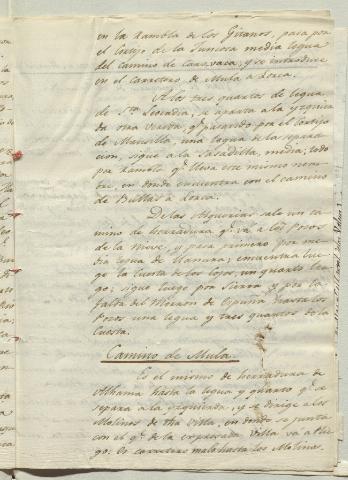 en la Rambla de los Gitanos, pasa por
el Cortijo de la Juncosa media legua
del camino de Caravaca, y se introduce
en el carretero de Mula a Lorca.
A los tres quartos de legua
de Sta. Leocadia, se aparta a la yzquier
da otra vereda qe. pasando por el Cortijo
de Mansilla, una legua de la separa
cion, sigue a la Zarzadilla, media; todo
por Rambla qe. lleva este mismo nom
bre, en donde encuentra con el camino
de Bullas a Lorca.
De las Alquerias sale un ca
mino de herradura qe. va a los Pozos
de la Nieve, y pasa primero por me
dia legua de llanura; encuentra lue
go la Cuesta de los Cojos, un quarto lar
go; sigue luego por Sierra y por la
falda del Morron de Espuña hasta los
Pozos una legua y tres quartos de la
Cuesta.
Camino de Mula.
Es el mismo de herradura de
Alhama hasta la legua y quarto qe. se
separa a la yzquierda, y se dirige a los
Molinos de dha Villa, en donde se junta
con el qe. de la expresada Villa va a Plie
go: Es carretero malo hasta los Molinos.